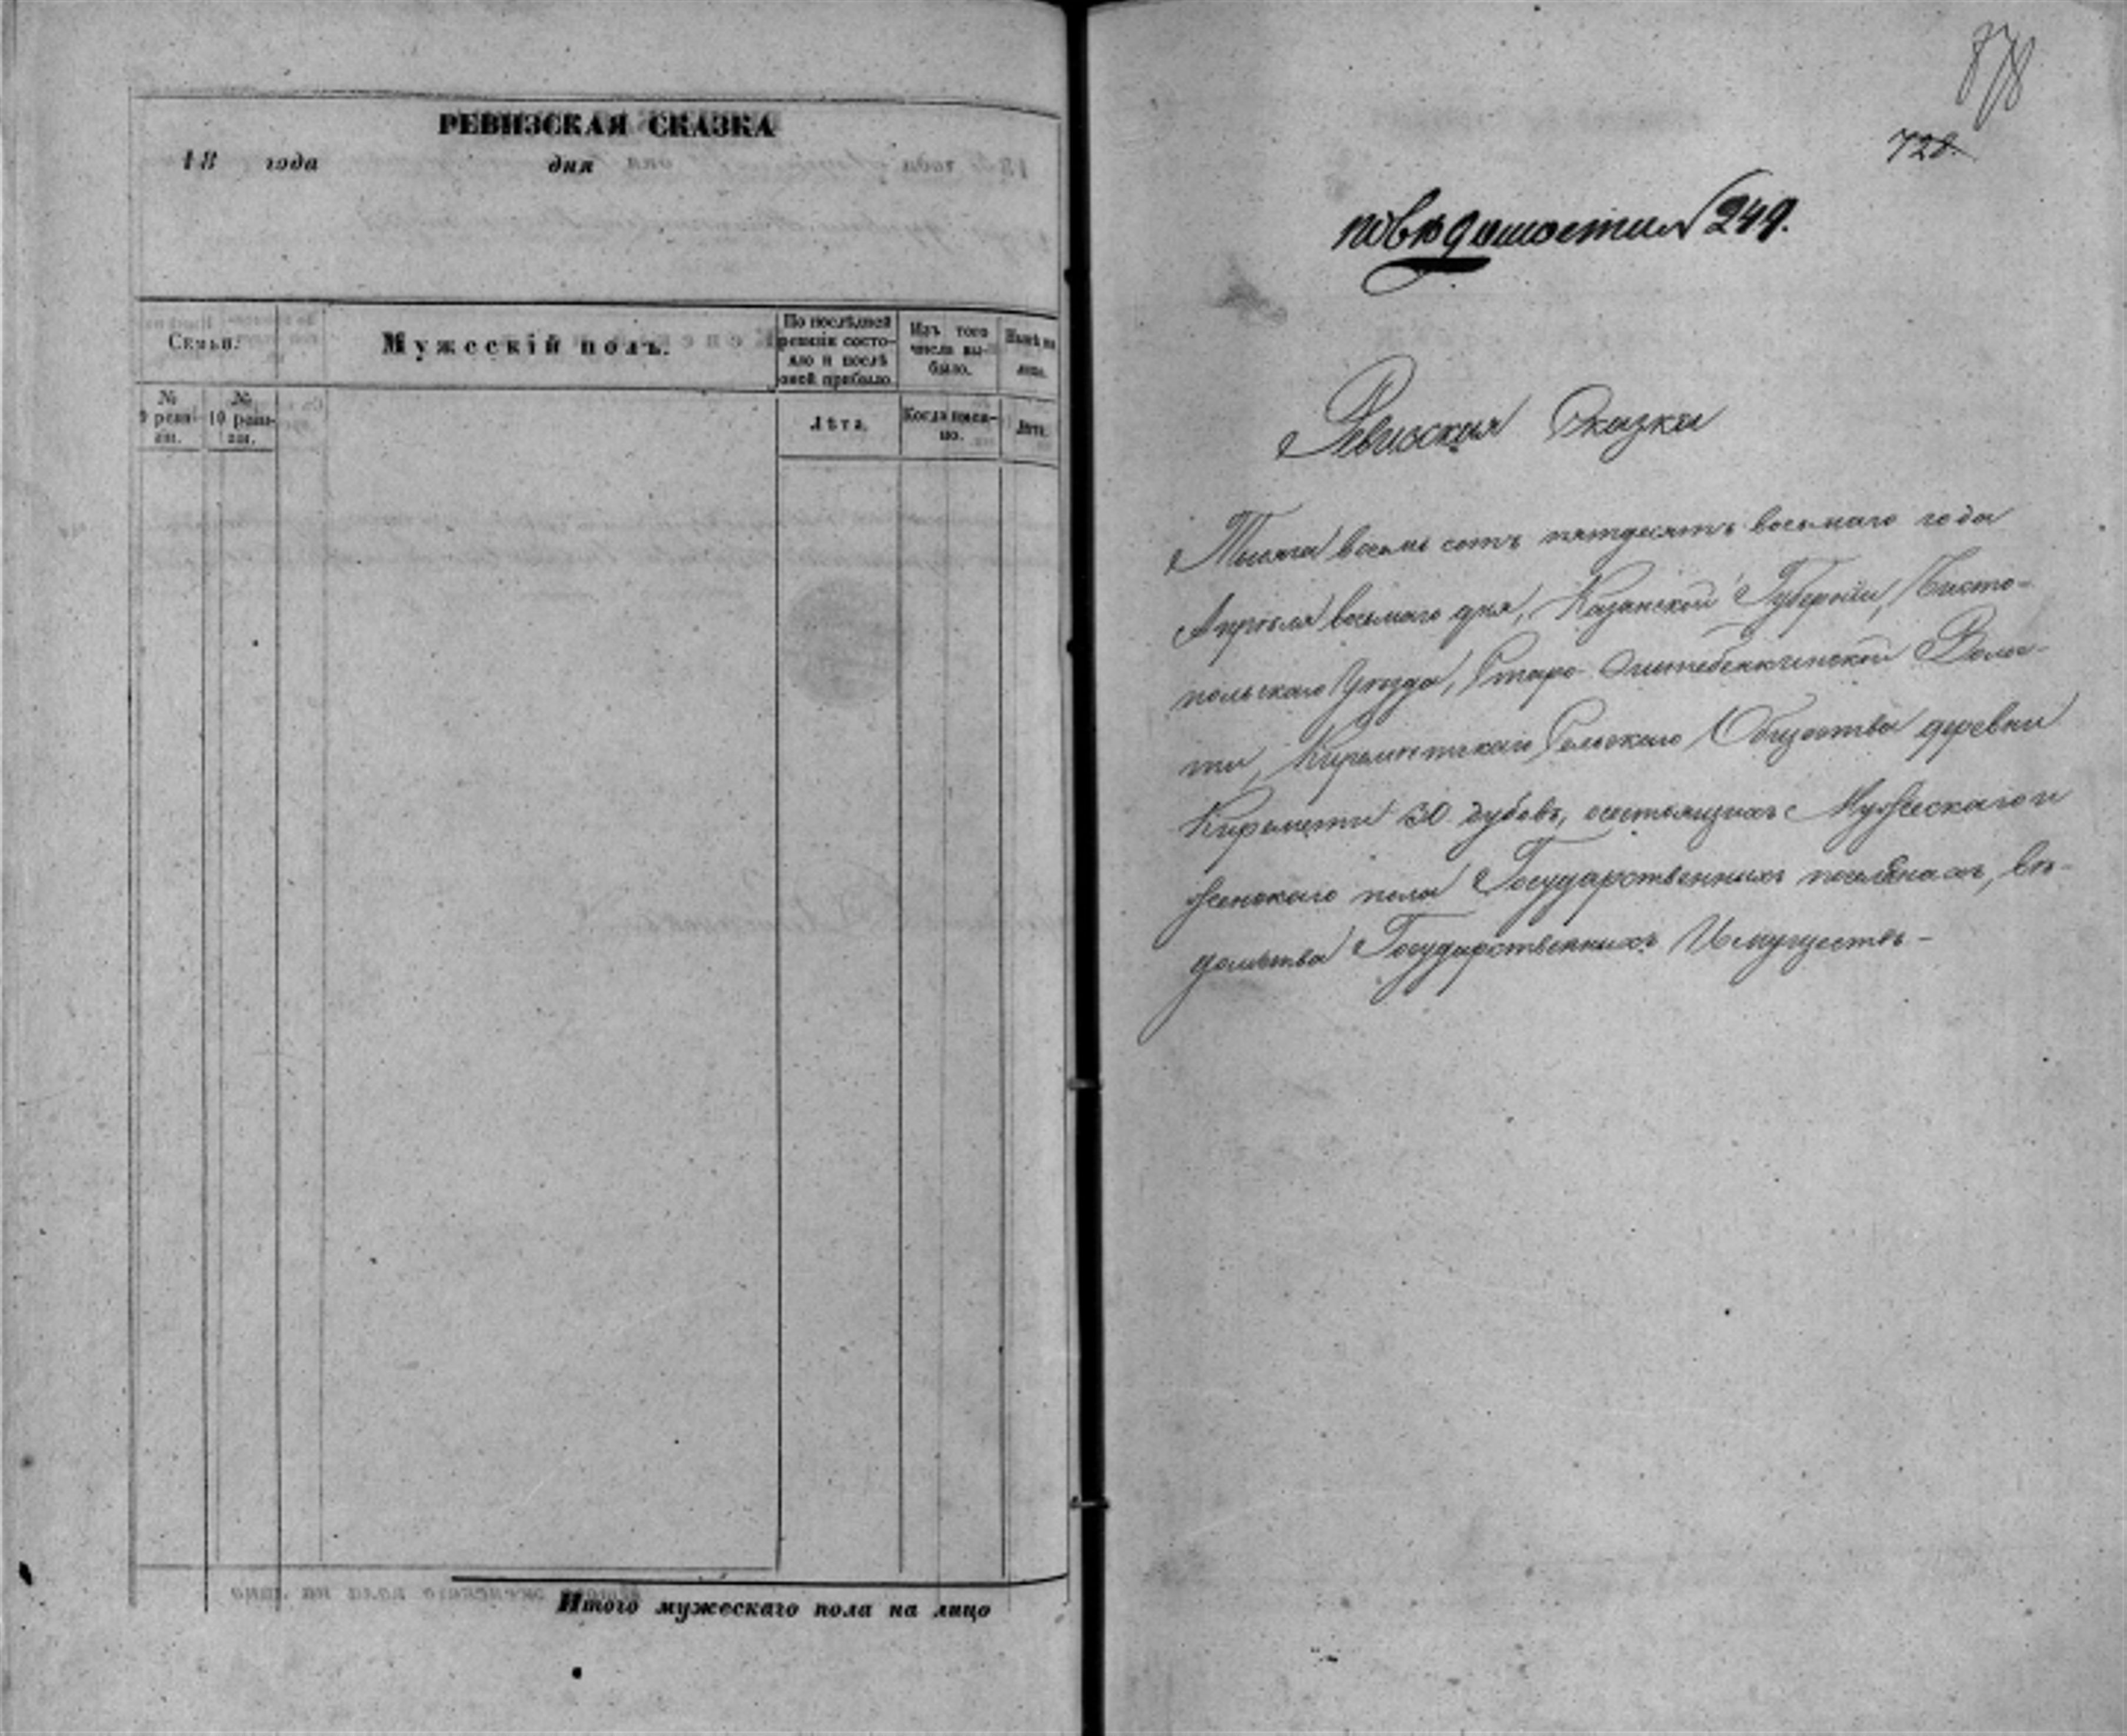 РЕВИЗСКАЯ СКАЗКА
18 года дня
Семьи.
Мужескій полъ.
По послѣдней ревизіи состо-
яло и послѣ
оной прибыло.
Изъ того
числа вы-
было.
Нынѣ на
лицо.
№
9 реви-
зіи.
№
10 реви-
зіи.
Лѣта.
Когда имен-
но.
Лѣта.
Итого мужескаго пола на лицо
878
728.
по вѣдомости N 249.
Ревизская Сказка
Тысяча восемь сотъ пятдесятъ восьмаго года
Апрѣля восьмаго дня, Казанской Губерніи, Чисто-
польскаго Уѣзда, Старо- Волос-
ти, Киреметскаго Сельскаго Общества деревни
Киремети 30 дубовъ, состоящихъ Мужескаго и
женскаго пола Государственныхъ поселянахъ, вѣ-
домства Государственныхъ Имуществъ-